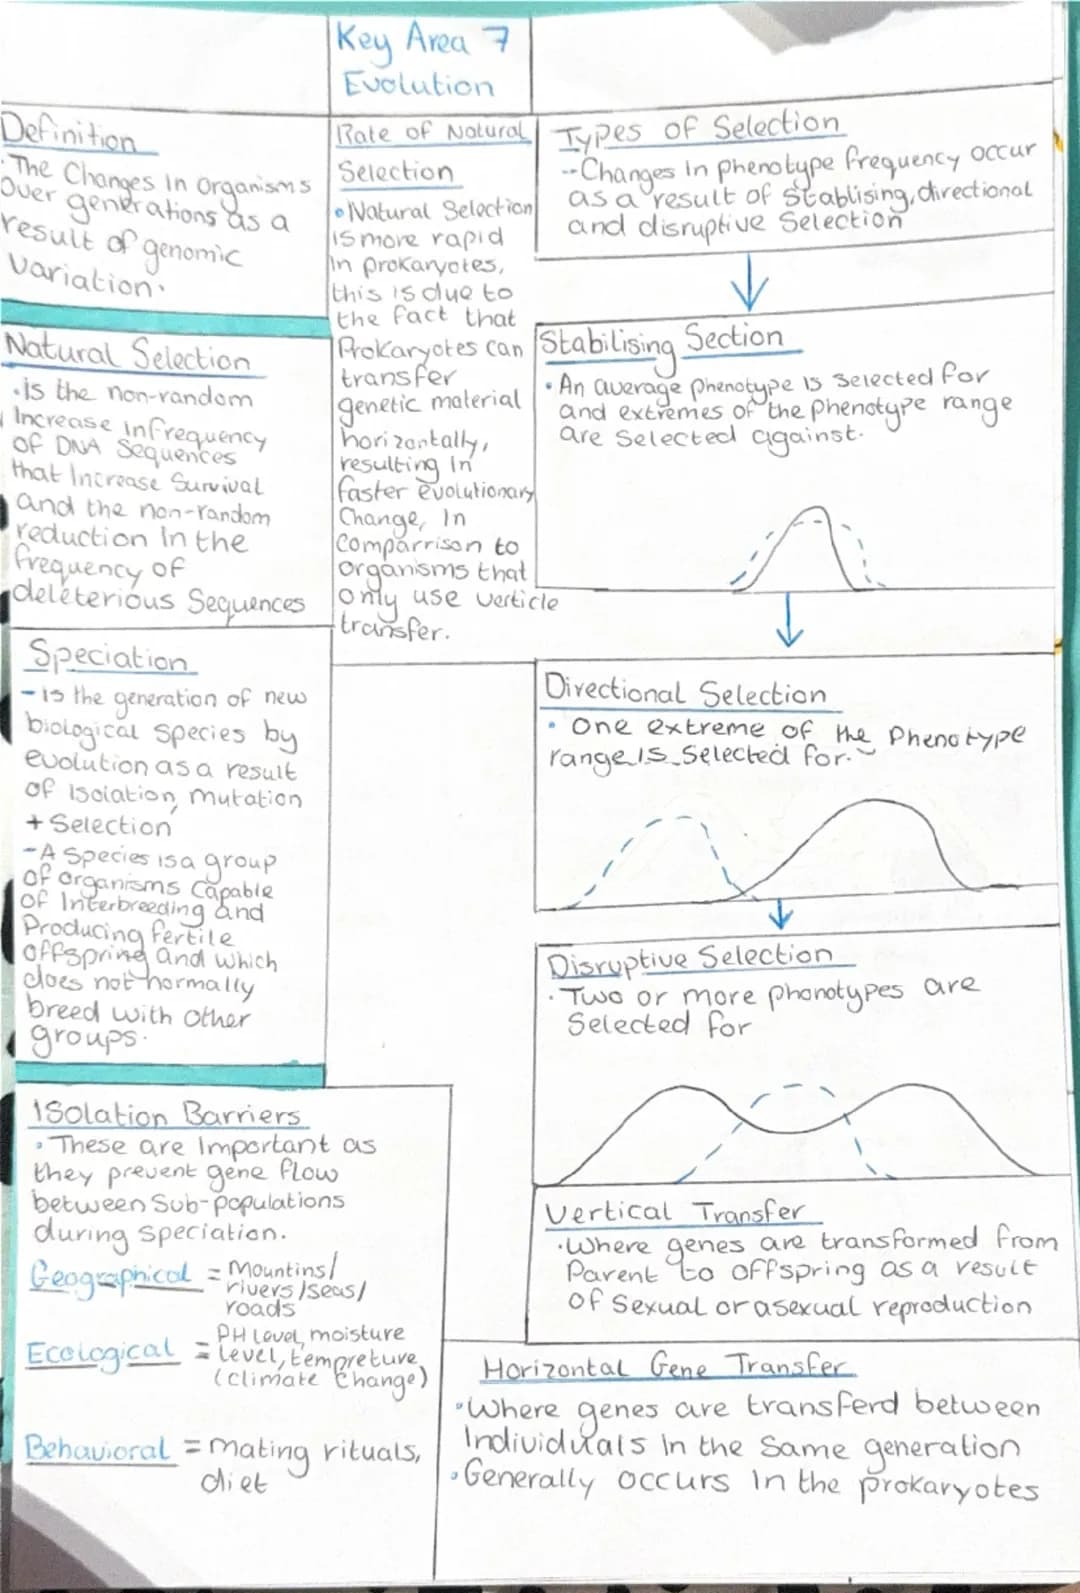 Key Area 7
Evolution
Definition
·The Changes In Organisms
Over generations as a
result of genomic
Variation·
Natural Selection
·is the non-random
Increase Infrequency
OF DNA Sequences
that Increase Survival
and the non-random
reduction In the
frequency of
deleterious Sequences
Speciation
-is the generation of new
biological species by
evolution as a result
of Isolation, mutation
+ Selection
-A Species is a group
of organisms Capable
of Interbreeding and
Producing fertile
offspring and which
does not normally
breed with other
groups·
Isolation Barriers
·These are Important as
they prevent gene flow
between Sub-populations
during speciation.
Geographical = Mountins/
rivers/seas/
roads
Ecological = PH level, moisture
level, tempreture,
(climate Change)
Behavioral = mating rituals,
diet
Rate of Natural
Selection
•Natural Selection
is more rapid
In prokaryotes,
this is due to
the fact that
Prokaryotes can
transfer
genetic material
horizontally,
resulting In
faster evolutionary
Change, In
comparrison to
organisms that
only use verticle
transfer.
Types of Selection
--Changes In phenotype frequency occur
as a result of Stablising, directional
and disruptive Selection
Stabilising Section
•An average phenotype is selected for
and extremes of the phenotype range
are selected against.
Directional Selection
• One extreme of the Phenotype
range is Selected for.
Disruptive Selection
·Two or more phonotypes are
Selected for
Vertical Transfer
·Where genes are transformed from
Parent to offspring as a result
of Sexual or asexual reproduction
Horizontal Gene Transfer
•Where genes are transferd between
Individuals In the Same generation
•Generally occurs In the prokaryotes